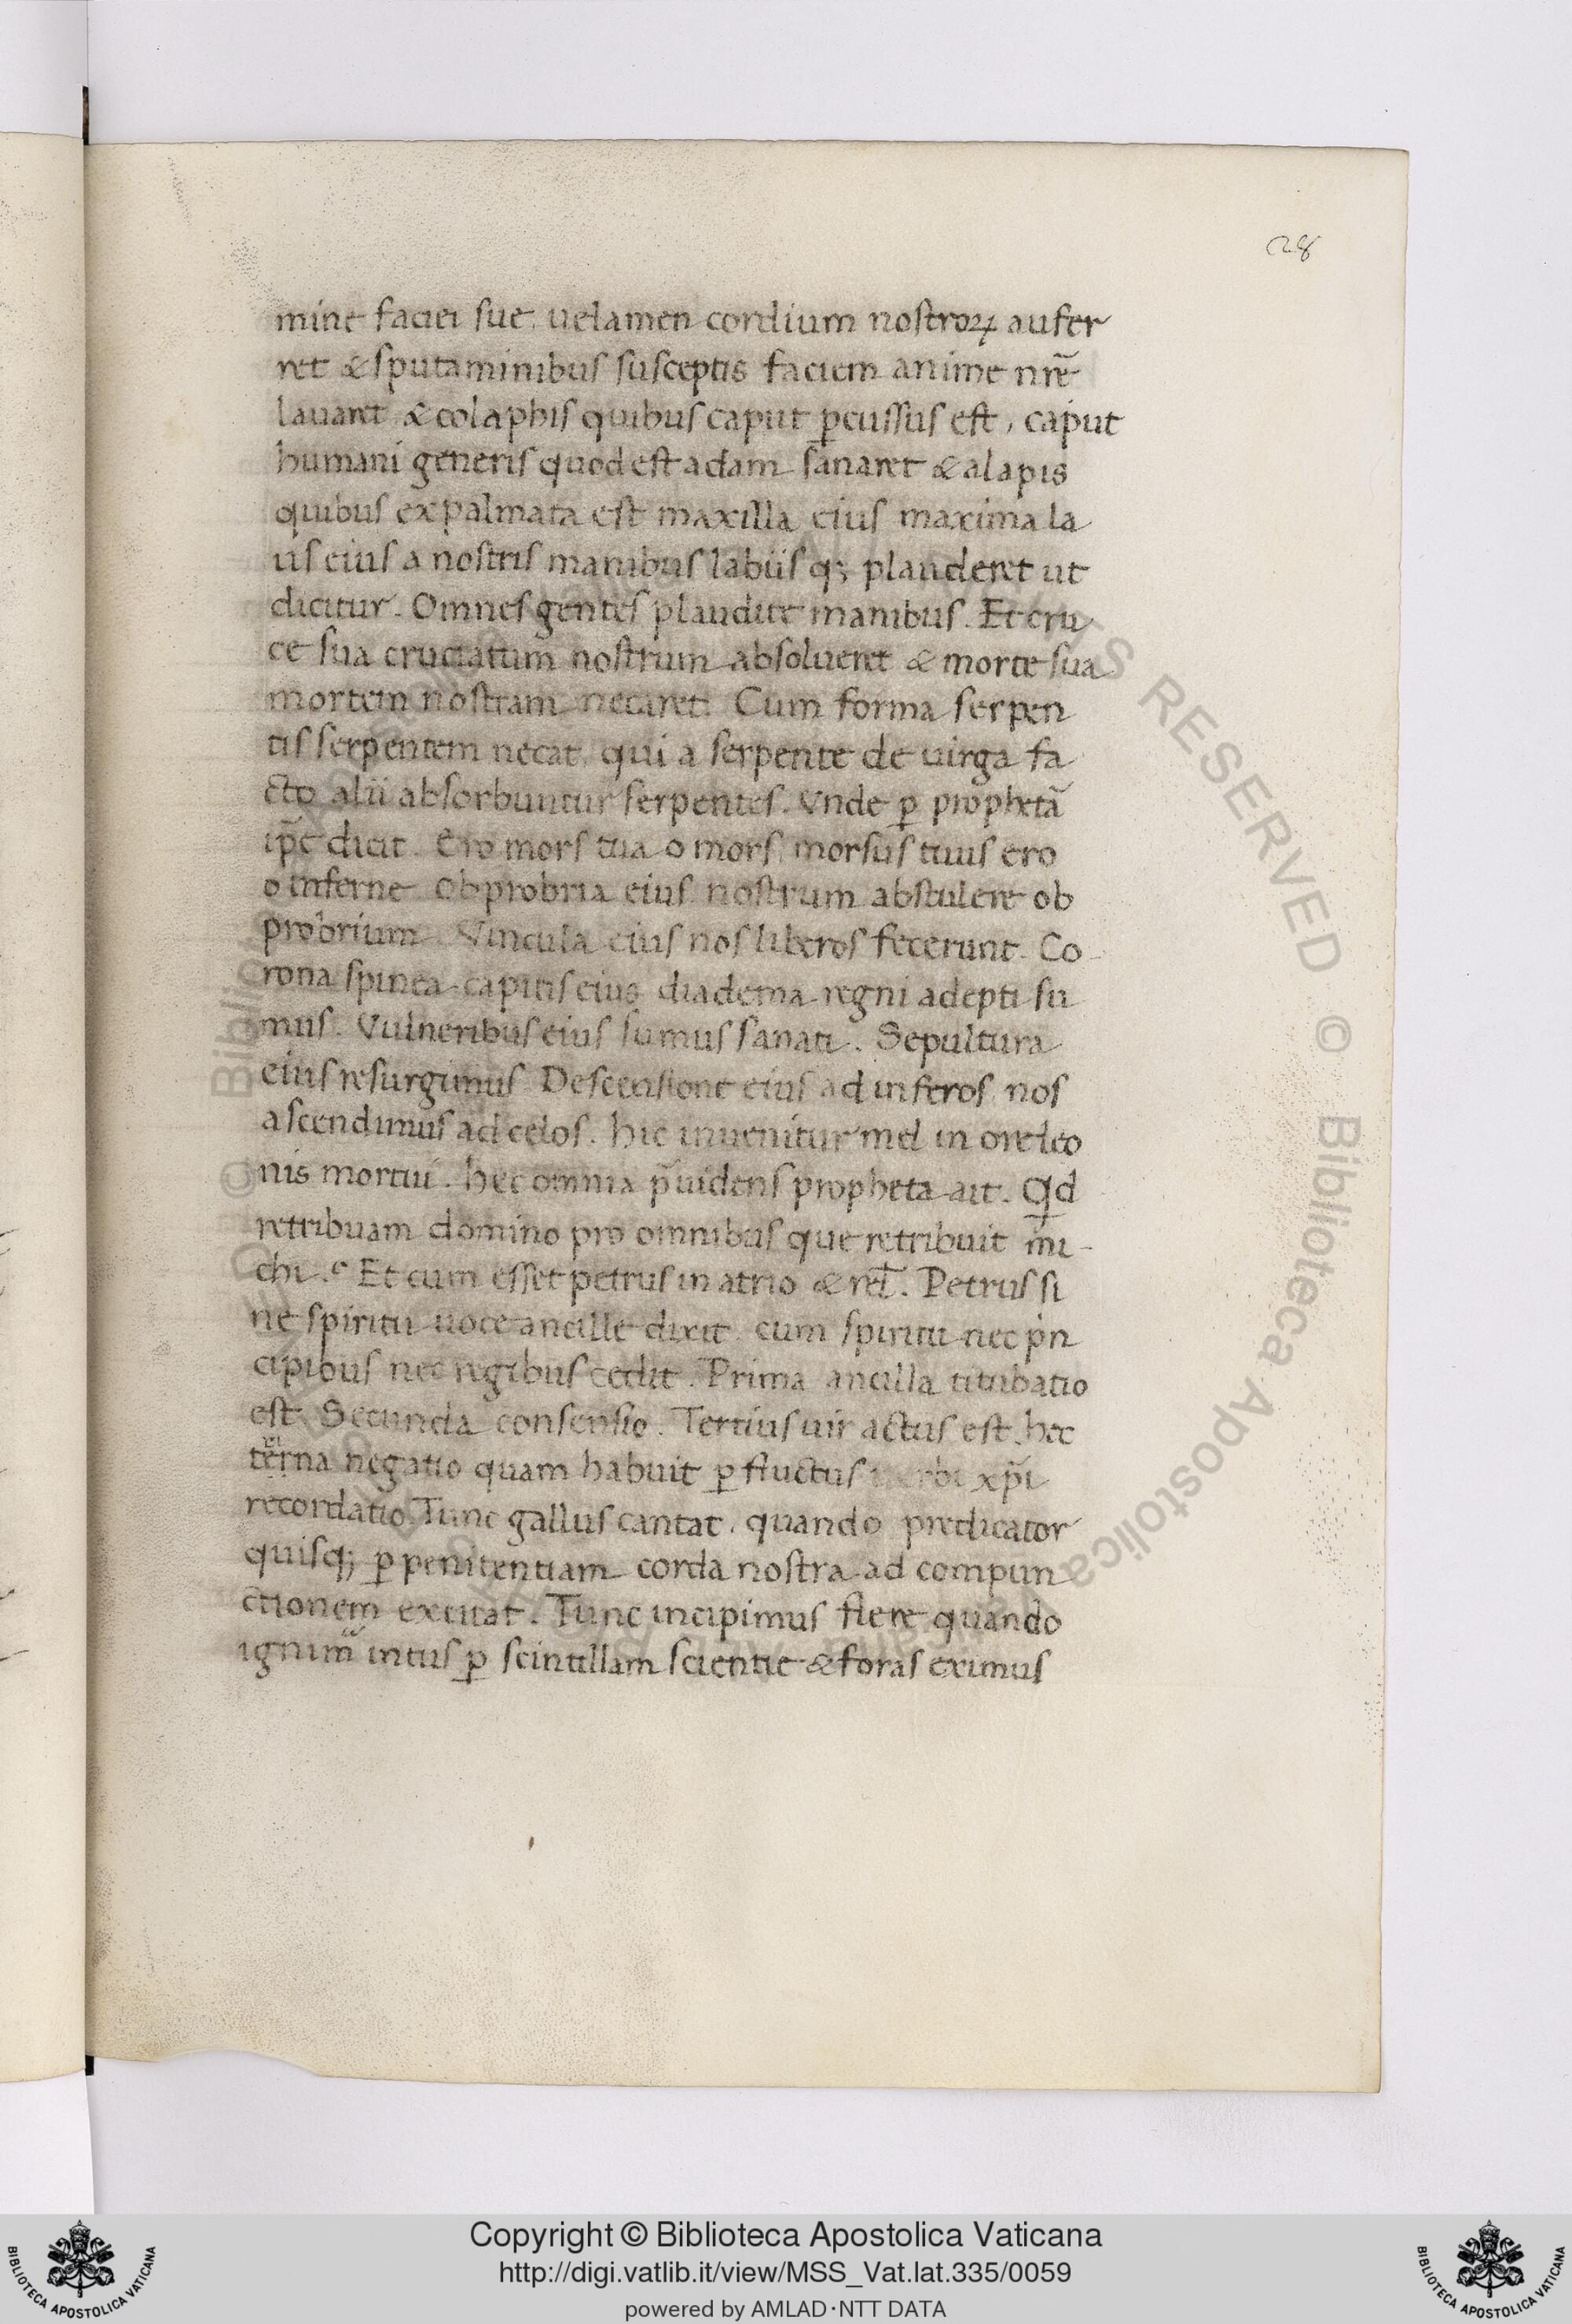 28
mine faciei sue uelamen cordium nostroꝝ aufer
ret & sputaminibus susceptis faciem anime nr̄e
lauaret & colaphis quibus caput ꝑcussus est, caput
humani generis quod est adam sanaret & alapis
quibus expalmata est maxilla eius maxima la
us eius a nostris manibus labiisq; plauderet ut
dicitur. Omnes gentes plaudite manibus. Et cru
ce sua cruciatum nostrum absolueret & morte sua
mortem nostram necaret. Cum forma serpen
tis serpentem necat, qui a serpente de uirga fa
cto alii absorbuntur serpentes. Vnde ꝑ prophetā
ip̄e dicit. Ero mors tua o mors, morsus tuus ero
o inferne. Obprobria eius nostrum abstulere ob
probrium. Vincula eius nos liberos fecerunt. Co-
rona spinea capitis eius diadema regni adepti su
mus. Vulneribus eius sumus sanati. Sepultura
eius resurgimus. Descensione eius ad inferos nos
ascendimus ad celos. hic inuenitur mel in ore leo
nis mortui. hec omnia p̄uidens propheta ait. Qd
retribuam domino pro omnibus que retribuit mi-
chi. Et cum esset petrus in atrio & rel̄. Petrus si
ne spiritu uoce ancille dixit, cum spiritu nec prin
cipibus nec regibus cedit. Prima ancilla titubatio
est. Secunda consensio. Tertius uir actus est. hec
terna negatio quam habuit ꝑ fluctus uerbi xp̄i
recordatio. Tunc gallus cantat, quando predicator
quisq; ꝑ penitentiam corda nostra ad compun
ctionem excitat. Tunc incipimus flere quando
intus ꝑ scintillam scientie & foras eximus
© Biblioteca Apostolica
RESERVED © Biblioteca Apostolica
Copyright © Biblioteca Apostolica Vaticana
http://digi.vatlib.it/view/MSS_Vat.lat.335/0059
powered by AMLAD·NTT DATA
BIBLIOTECA APOSTOLICA VATICANA
BIBLIOTECA APOSTOLICA VATICANA